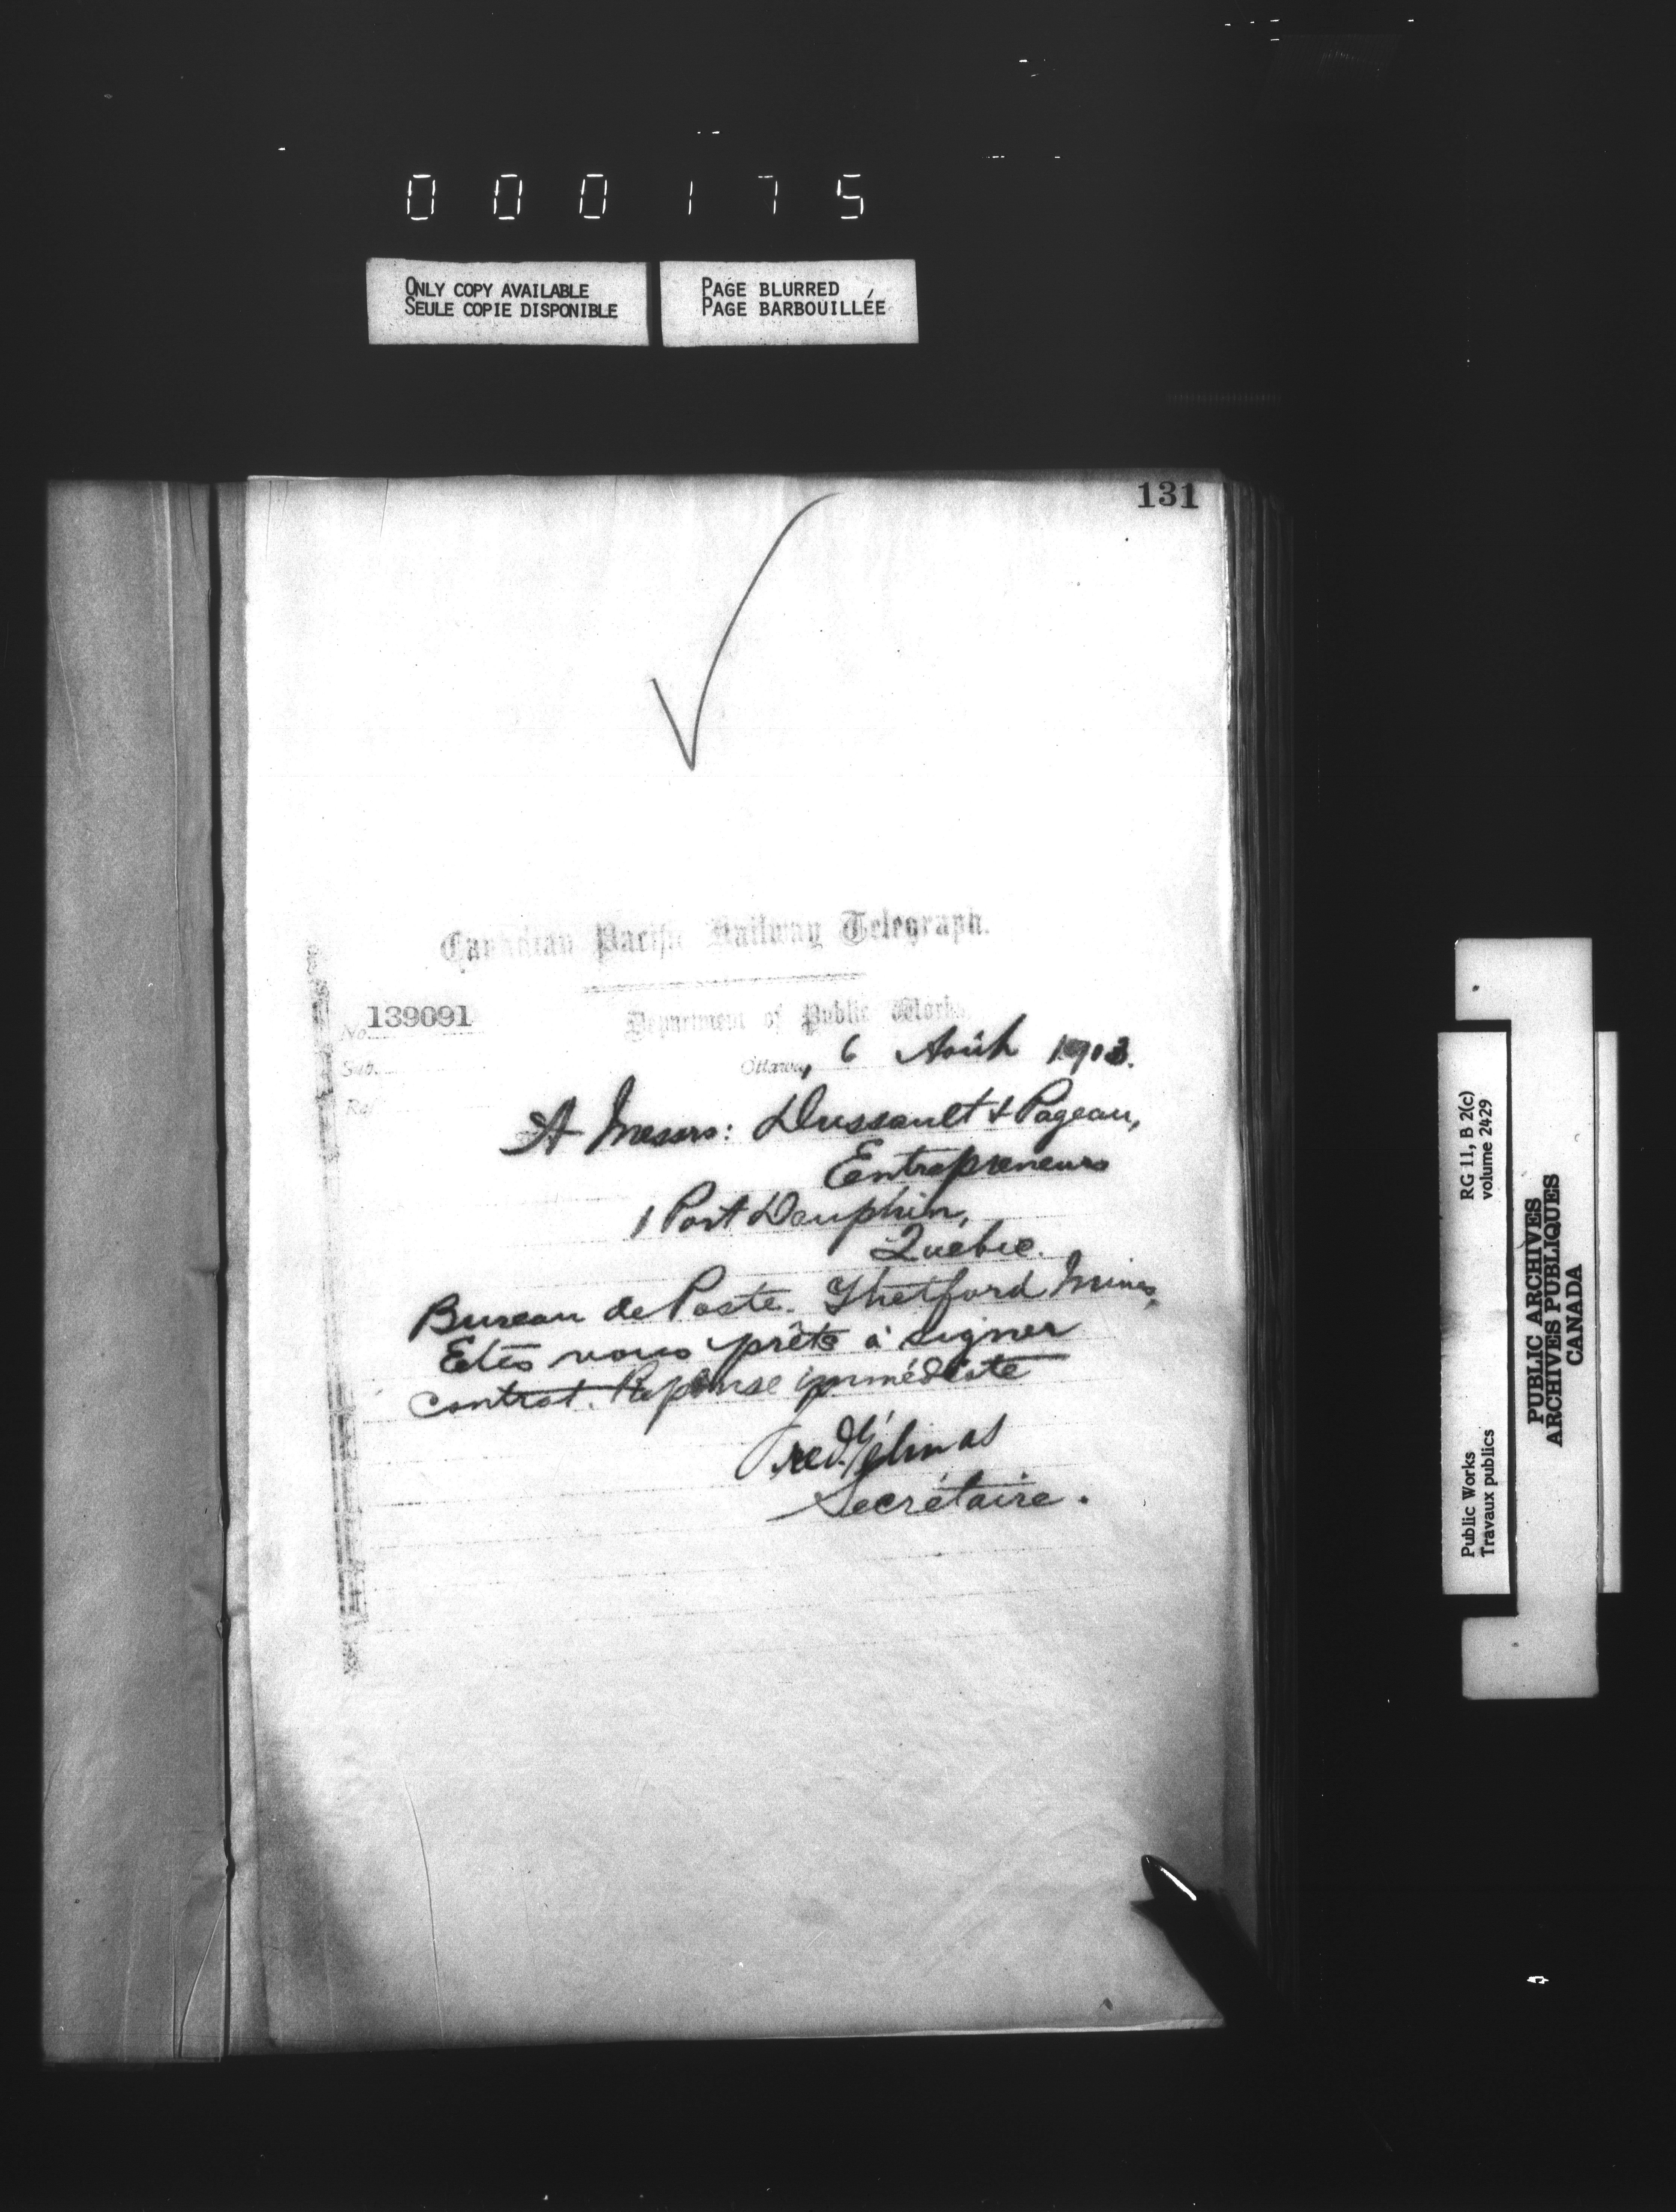 000175
ONLY COPY AVAILABLE
SEULE COPIE DISPONIBLE
PAGE BLURRED
PAGE BARBOUILLÉE
131
Canadian Pacific Railway Telegraph.
Department of Public Works.
No. 139091
Sub.
Ref
Ottawa, 6 Août 1903.
A Messrs: Dussault & Pageau,
Entrepreneurs
1 Port Dauphin,
Quebec.
Bureau de Poste. Thetford Mines,
Etes vous prêts à signer
contrat. Réponse immédiate
Fred. Gélinas
Secrétaire.
RG 11, B 2(c)
volume 2429
Public Works
Travaux publics
PUBLIC ARCHIVES
ARCHIVES PUBLIQUES
CANADA